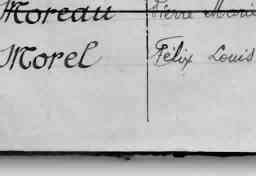 Moreau Pierre Marie
Morel Félix Louis